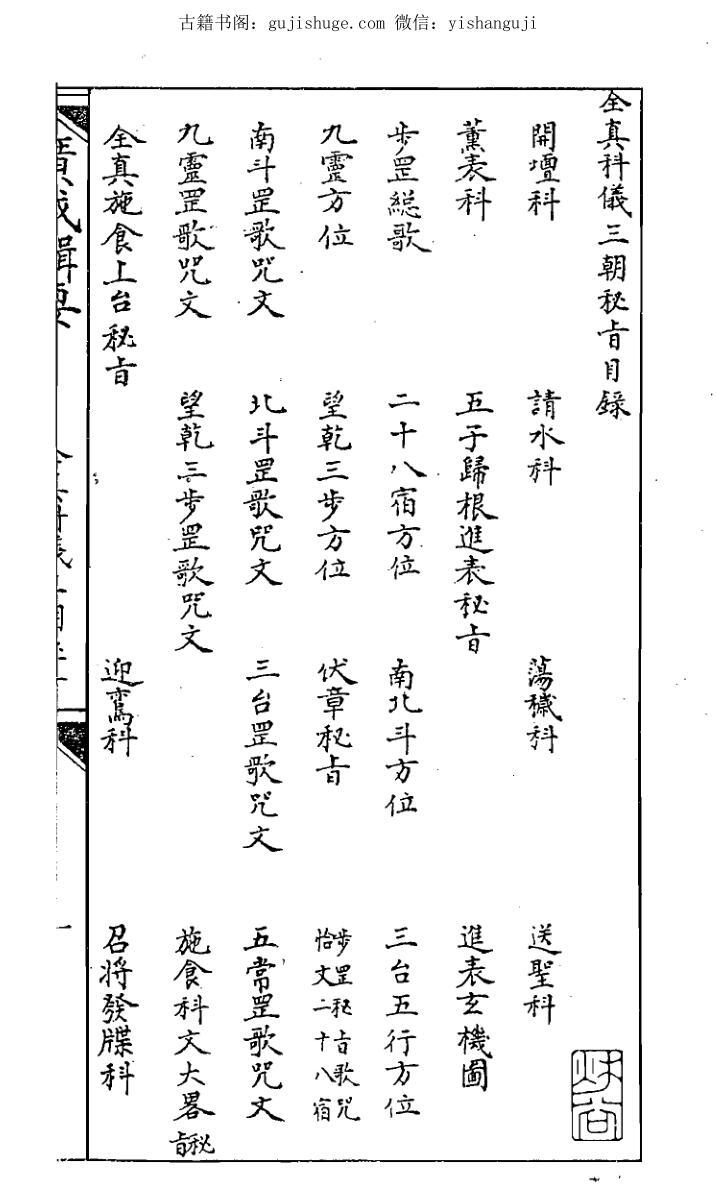 古籍书阁：gujishuge.com 微信：yishanguji
全真科儀三朝秘旨目錄
開壇科 請水科 蕩穢科 送聖科
薰表科 五子歸根進表秘旨 進表玄機圖
步罡総歌 二十八宿方位 南北斗方位 三台五行方位
九靈方位 望乾三步方位 伏章秘旨 步罡秘旨歌咒恰文二十八宿
南斗罡歌咒文 北斗罡歌咒文 三台罡歌咒文 五常罡歌咒文
九靈罡歌咒文 望乾三步罡歌咒文 施食科文大畧秘旨
全真施食上台秘旨 迎鸞科 召将發牒科
廣成輯要
一